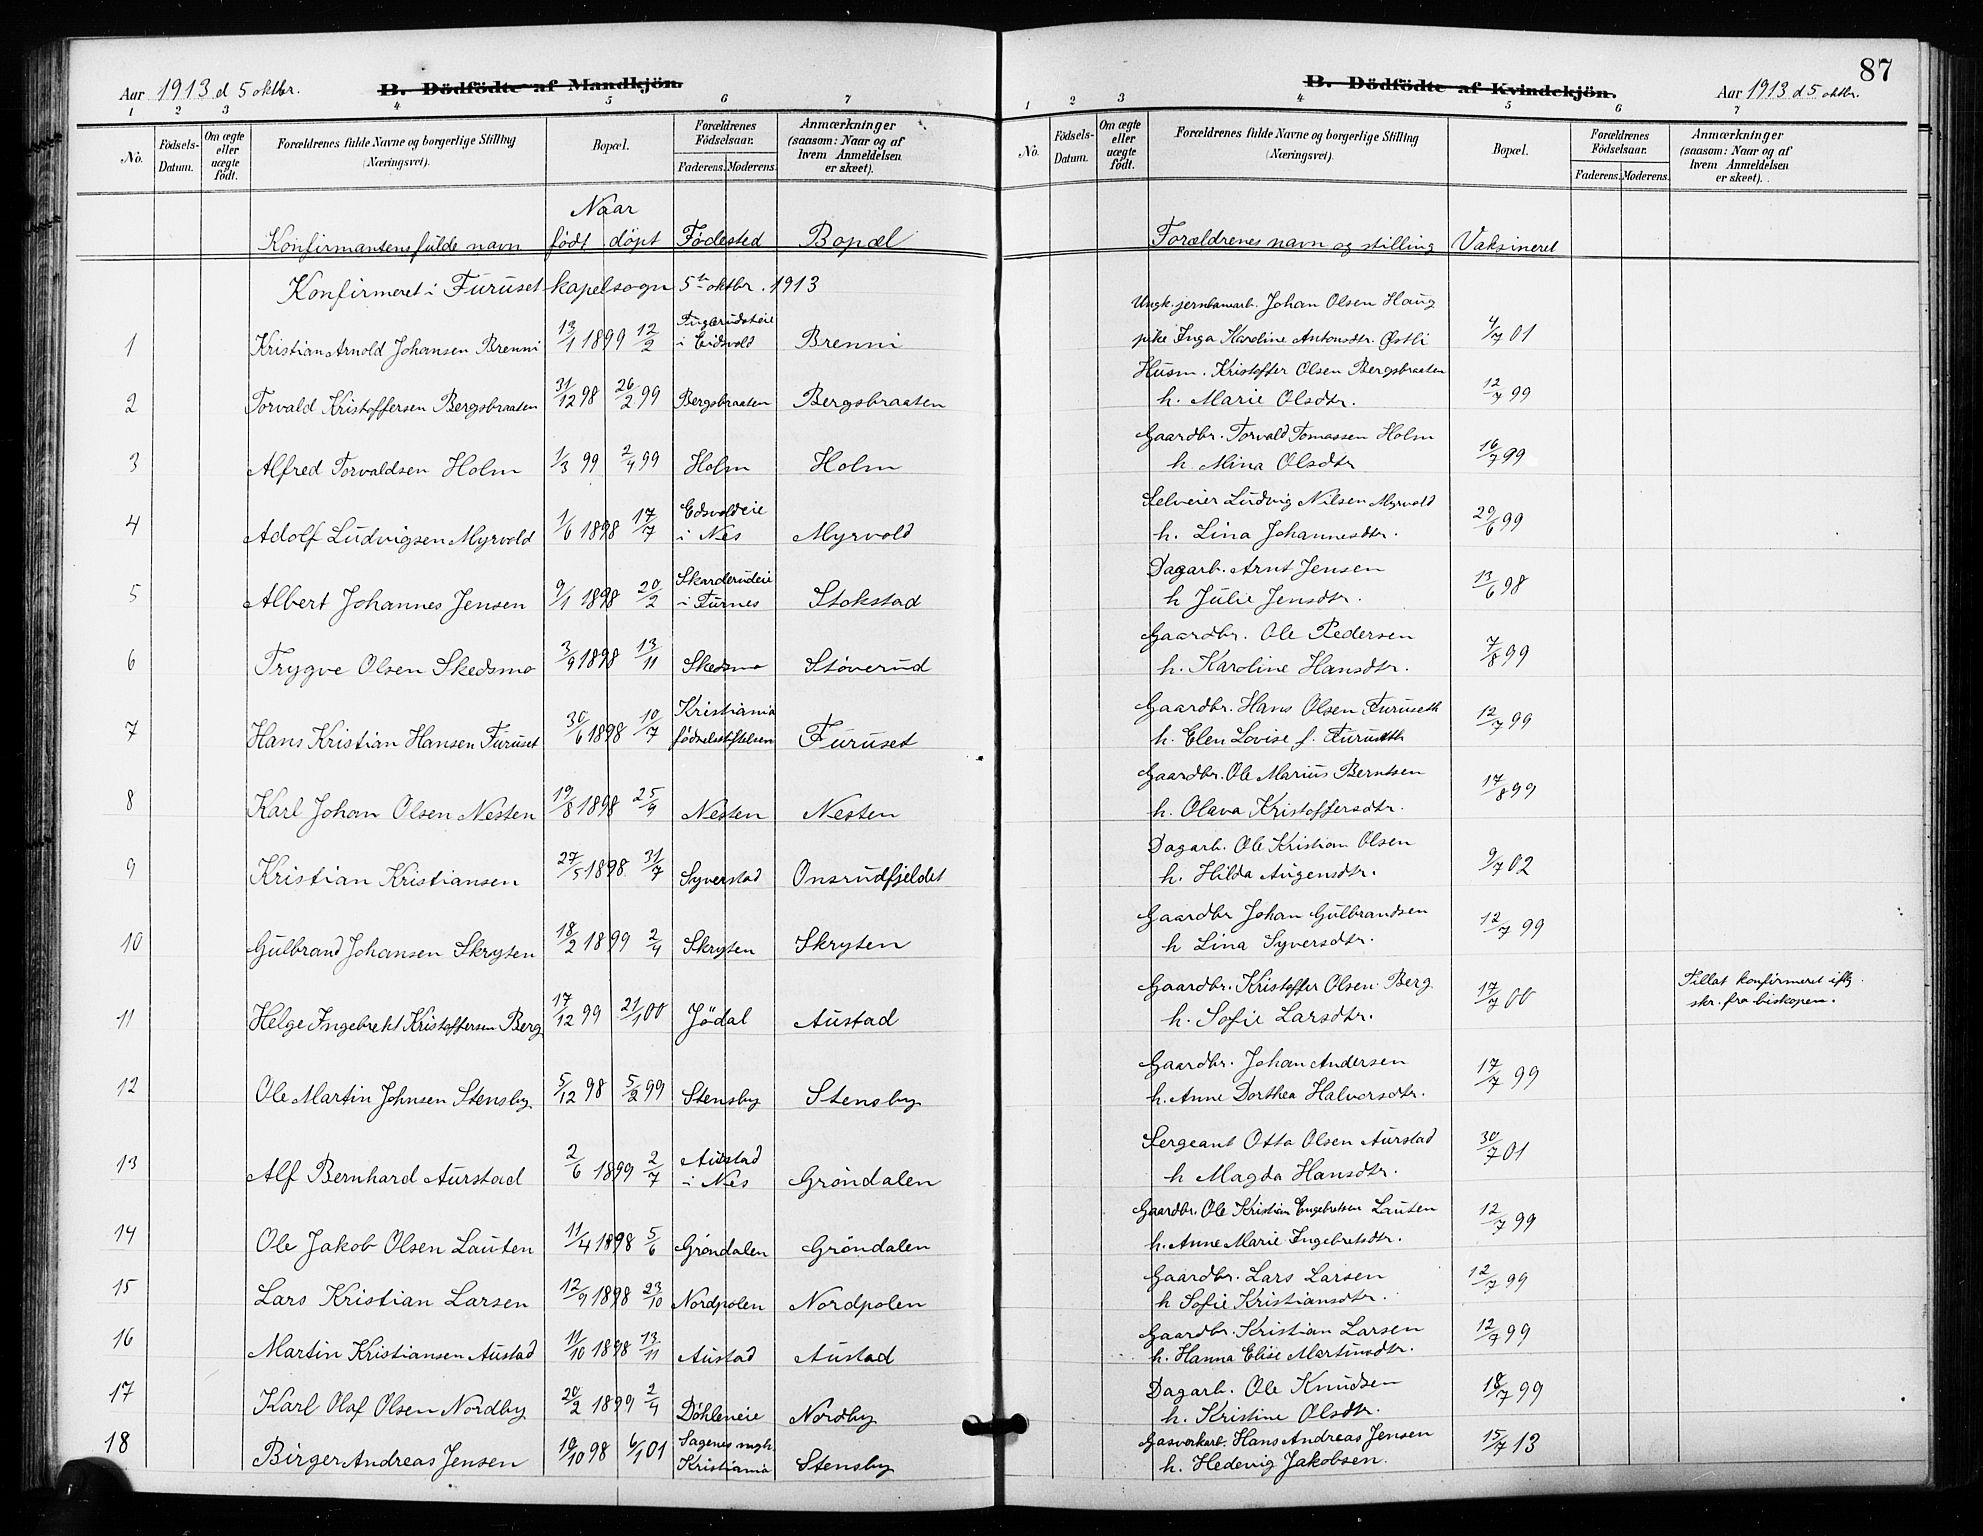 87
Aar 1913 d 5 oktbr.
B. Dödfödte af Mandkjön.
1 2 3 4 5 6 7
No. Födsels-Datum. Om ægte eller uægte födt. Forældrenes fulde Navne og borgerlige Stilling (Næringsvei). Bopæl. Forældrenes Födselsaar. Faderens. Moderens. Anmærkninger (saasom: Naar og af hvem Anmeldelsen er skeet).
Naar
Konfirmantens fulde navn født døpt Fødested Bopæl
Konfirmeret i Furuset kapelsogn 5te oktbr. 1913
1 Kristian Arnold Johansen Brenni 13/1 1899 12/2 i Eidsvold Brenni
2 Torvald Kristoffersen Bergsbraaten 31/12 98 26/2 99 Bergsbraaten Bergsbraaten
3 Alfred Torvaldsen Holm 1/3 99 2/4 99 Holm Holm
4 Adolf Ludvigsen Myrvold 1/6 1898 17/7 Edsvoldeie i Nes Myrvold
5 Albert Johannes Jensen 9/1 1898 20/2 Skarderudeie i Furnes Stokstad
6 Trygve Olsen Skedsmo 3/9 1898 13/11 Skedsmo Støverud
7 Hans Kristian Hansen Furuset 30/6 1898 10/7 Kristiania fødselsstiftelsen Furuset
8 Karl Johan Olsen Nesten 19/8 1898 25/9 Nesten Nesten
9 Kristian Kristiansen 27/5 1898 31/7 Syverstad Onsrudfjeldet
10 Gulbrand Johansen Skrysten 18/2 1899 2/4 Skrysten Skrysten
11 Helge Ingebrekt Kristoffersen Berg 17/12 99 21/1 00 Jödal Austad
12 Ole Martin Johnsen Stensby 5/12 98 5/2 99 Stensby Stensby
13 Alf Bernhard Aurstad 2/6 1899 2/7 Austad i Nes Grøndalen
14 Ole Jakob Olsen Lauten 11/4 1898 5/6 Grøndalen Grøndalen
15 Lars Kristian Larsen 12/9 1898 23/10 Nordpolen Nordpolen
16 Martin Kristiansen Austad 11/10 1898 13/11 Austad Austad
17 Karl Olaf Olsen Nordby 20/2 1899 2/4 Døhleneie Nordby
18 Birger Andreas Jensen 19/10 98 6/1 01 Sagenes mgh. Kristiania Stensby
B. Dödfödte af Kvindekjön.
Aar 1913 d 5 oktbr.
1 2 3 4 5 6 7
No. Födsels-Datum. Om ægte eller uægte födt. Forældrenes fulde Navne og borgerlige Stilling (Næringsvei). Bopæl. Forældrenes Födselsaar. Faderens. Moderens. Anmærkninger (saasom: Naar og af hvem Anmeldelsen er skeet).
Forældrenes navn og stilling Vaksineret
Ungk. jernbanearb. Johan Olsen Haug
pike Inga Karoline Antonsdtr. Østli 4/7 01
Husm. Kristoffer Olsen Bergsbraaten
h. Marie Olsdtr. 12/7 99
Gaardbr. Torvald Tomassen Holm
h. Mina Olsdtr 16/7 99
Selveier Ludvig Nilsen Myrvold
h. Lina Johannesdtr. 29/6 99
Dagarb. Arnt Jensen
h Julie Jensdtr. 13/6 98
Gaardbr. Ole Pedersen
h. Karoline Hansdtr. 7/8 99
Gaardbr. Hans Olsen Furuseth
h. Elen Lovise f. Furuseth 12/7 99
Gaardbr. Ole Marius Berntsen
h. Olava Kristoffersdtr. 17/8 99
Dagarb. Ole Kristian Olsen
h. Hilda Augensdtr. 9/7 02
Gaardbr Johan Gulbrandsen
h Lina Syversdtr. 12/7 99
Gaardbr. Kristoffer Olsen Berg
h. Sofie Larsdtr. 17/7 00 Tillat konfirmeret iflg. skr. fra biskopen.
Gaardbr. Johan Andersen
h. Anne Dorthea Halvorsdtr. 17/7 99
Sergeant Otto Olsen Aurstad
h Magda Hansdtr. 30/7 01
Gaardbr. Ole Kristian Engebretsen Lauten
h. Anne Marie Ingebretsdtr. 12/7 99
Gaardbr. Lars Larsen
h Sofie Kristiansdtr. 12/7 99
Gaardbr. Kristian Larsen
h. Hanna Elise Martinusdtr. 12/7 99
Dagarb. Ole Knudsen
h. Kristine Olsdtr. 18/7 99
Gasverkarb. Hans Andreas Jensen
h. Hedevig Jakobsen. 15/7 13